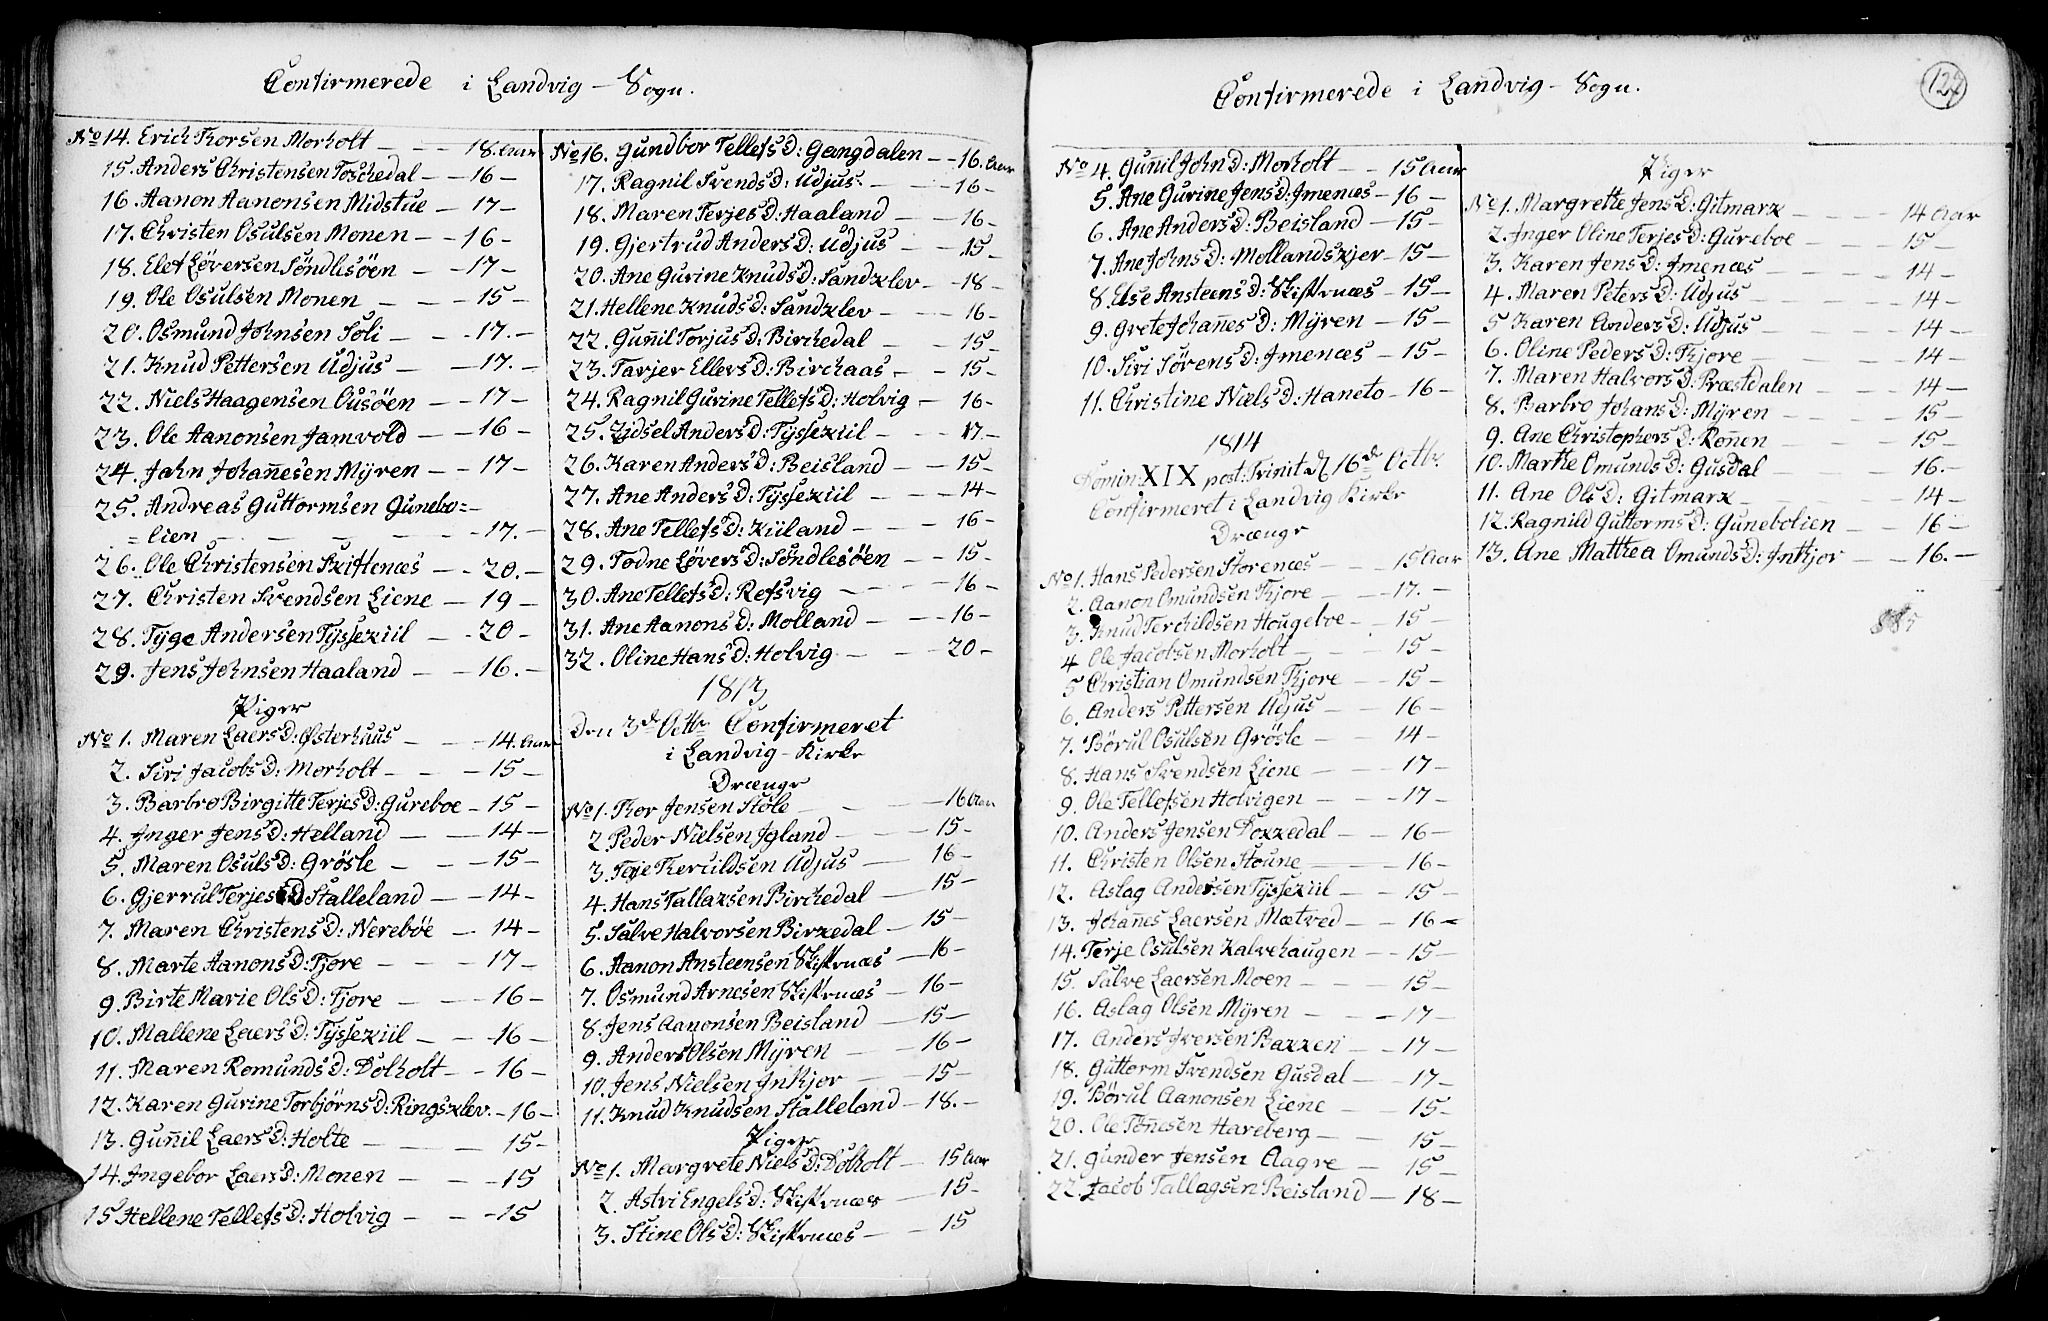 Confirmerede i Landvig - Sogn.
No 14. Erich Thorsen Morholt - - - 18. Aar
15. Anders Christensen Toschedal - - 16 -
16. Aanon Aanonsen Midstue - 17 -
17. Christen Osulsen Monen - - 16 -
18. Elef Løversen Söndlesöen - - 17 -
19. Ole Osulsen Monen - - - 15 -
20. Osmund Johnsen Soli - - - 17. -
21. Knud Pettersen Udjus - - 17. -
22. Niels Haagensen Ousöen - - 17 -
23. Ole Aanonsen Jamvold - - 16 -
24. Jahn Johañesen Mÿren - - 17 -
25. Andreas Guttormsen Gunebo=
= lien - - - - - 17. -
26. Ole Christensen Skiftenæs - - 20. -
27. Christen Svendsen Liene - 19 -
28. Tÿge Andersen Tÿssekiil - - 20 -
29. Jens Johnsen Haaland - - 16. -
Piger
No 1. Maren Laers D: Østerhuus - - - 14. Aar
2. Siri Jacobs D: Morholt - - - 15 -
3. Barbro Birgitte Terjes D: Gureboe - 15 -
4. Inger Jens D: Helland - - - 14 -
5. Maren Osuls D: Grösle - - - 15 -
6. Gjerrul Terjes D Stalleland - - 14 -
7. Maren Christens D: Nereböe - 14 -
8. Marte Aanons D: Fjore - - - 17 -
9. Birte Marie Ols D: Fjore - - - 16 -
10. Mallene Laers D: Tÿssekiil - - 16 -
11. Maren Romunds D: Dolholt - - 16 -
12. Karen Gurine Torbjörns D: Ringsklev - 16 -
13. Guñil Laers D: Holte - - - 15 -
14. Ingebor Laers D: Monen - - - 15
15 Hellene Tellefs D: Holvig - - - 15
No 16. Gundbor Tellefs D: Gangdalen - - 16. Aar
17. Ragnil Svends D: Udjus - - - 16 -
18. Maren Terjes D: Haaland - - 16 -
19. Gjertrud Anders D: Udjus - - 15 -
20. Ane Gurine Knuds D: Sandklev - - 18 -
21. Hellene Knuds D: Sandklev - - - 16 -
22. Guñil Torjus D: Birchedal - - 15 -
23. Tarjer Ellers D: Birchaas - - 15 -
24. Ragnil Gurine Tellefs D: Holvig - 16 -
25. Zidsel Anders D: Tÿssekiil - - - 17 -
26. Karen Anders D: Beisland - - 15 -
27. Ane Anders D: Tÿssekiil - - - 14 -
28. Ane Tellefs D: Kiiland - - - 16 -
29. Todne Løvers D: Söndlesöen - 15 -
30. Ane Tellefs D: Refsvig - - - 16 -
31. Ane Aanons D: Molland - - - 16 -
32. Oline Hans D: Holvig - - - 20 -
1813
Den 3d Octbr Confirmeret
i Landvig - Kirke
Drænge
No 1. Thor Jensen Stole - - - 16 Aar
2. Peder Nielsen Igland - - 15 -
3. Terje Terchildsen Udjus - 16 -
4. Hans Tallaksen Birchedal - 15 -
5. Salve Halvorsen Birkedal - 15 -
6. Aanon Ansteensen Skiftnæs - 16 -
7. Osmund Arnesen Skiftnæs - 16 -
8. Jens Aanonsen Beisland - 15 -
9. Anders Olsen Mÿren - 16 -
10. Jens Nielsen Inthjor - - 15 -
11. Knud Knudsen Stalleland - 18. -
Piger
No 1. Margrete Niels D: Dolholt - 15 Aar
2. Astri Engels D: Skiftnæs - 15 -
3. Stine Ols D: Skiftnæs - - 15
Confirmerede i Landvig - Sogn.
127
No 4. Gunil John D: Morholt - - 15 Aar
5. Ane Gurine Jens D: Imenæs - 16 -
6. Ane Anders D: Beisland - 15 -
7. Ane Johns D: Mollandskjer - 15 -
8. Else Ansteens D: Skiftnæs - 15 -
9. Grete Johañes D: Mÿren - 15 -
10. Siri Sörens D: Imenæs - 15 -
11. Christine Niels D: Haneto - 16 -
1814
Domin: XIX post: Trinit: d 16de Octbr.
Confirmeret i Landvig Kirke
Drænge
No 1. Hans Pedersen Storenæs - - 15 Aar
2. Aanon Omundsen Fjore - - 17. -
3. Knud Terchildsen Hougeboe - - 15 -
4 Ole Jacobsen Morholt - - - 15 -
5 Christian Omundsen Fjore - - 15 -
6. Anders Pettersen Udjus - - 16 -
7. Börul Osulsen Grösle - - 14 -
8. Hans Svendsen Liene - - - 17 -
9. Ole Tellefsen Holvigen - - - 17 -
10. Anders Jensen Dokkedal - - 16 -
11. Christen Olsen Stoune - 16 -
12. Aslag Andersen Tÿssekiil - - 15 -
13. Johañes Laersen Mætved - - 16 -
14. Terje Osulsen Kalvehaugen - - 15 -
15. Salve Laersen Moen - - - 15 -
16. Aslag Olsen Mÿren - - - 17 -
17. Anders Iversen Bakken - - 17 -
18. Guttorm Svendsen Gusdal - 17 -
19. Börul Aanonsen Liene - 15 -
20. Ole Tönesen Hareberg - - 15 -
21. Gunder Jensen Aagre - 15 -
22. Jacob Tallagsen Beisland - 18 -
Piger
No 1. Margrethe Jens D: Gitmark - - - - 14 Aar
2. Inger Oline Terjes D: Gureboe - - - 15 -
3. Karen Jens D: Imenæs - - - - 14 -
4. Maren Peters D: Udjus - - - - 14 -
5 Karen Anders D: Udjus - - - - 14 -
6. Oline Peders D: Fjore - - - - 14 -
7. Maren Halvors D: Præstdalen - - - 14 -
8. Barbro Johans D: Mÿren - - - 15 -
9. Ane Christophers D: Roñen - - - 15 -
10. Marthe Omunds D: Gusdal - - - 16. -
11. Ane Ols D: Gitmark - - - - 14 -
12. Ragnild Guttorms D: Gunebolien - - 16 -
13. Ane Mathea Omunds D: Inthjor - - 16. -